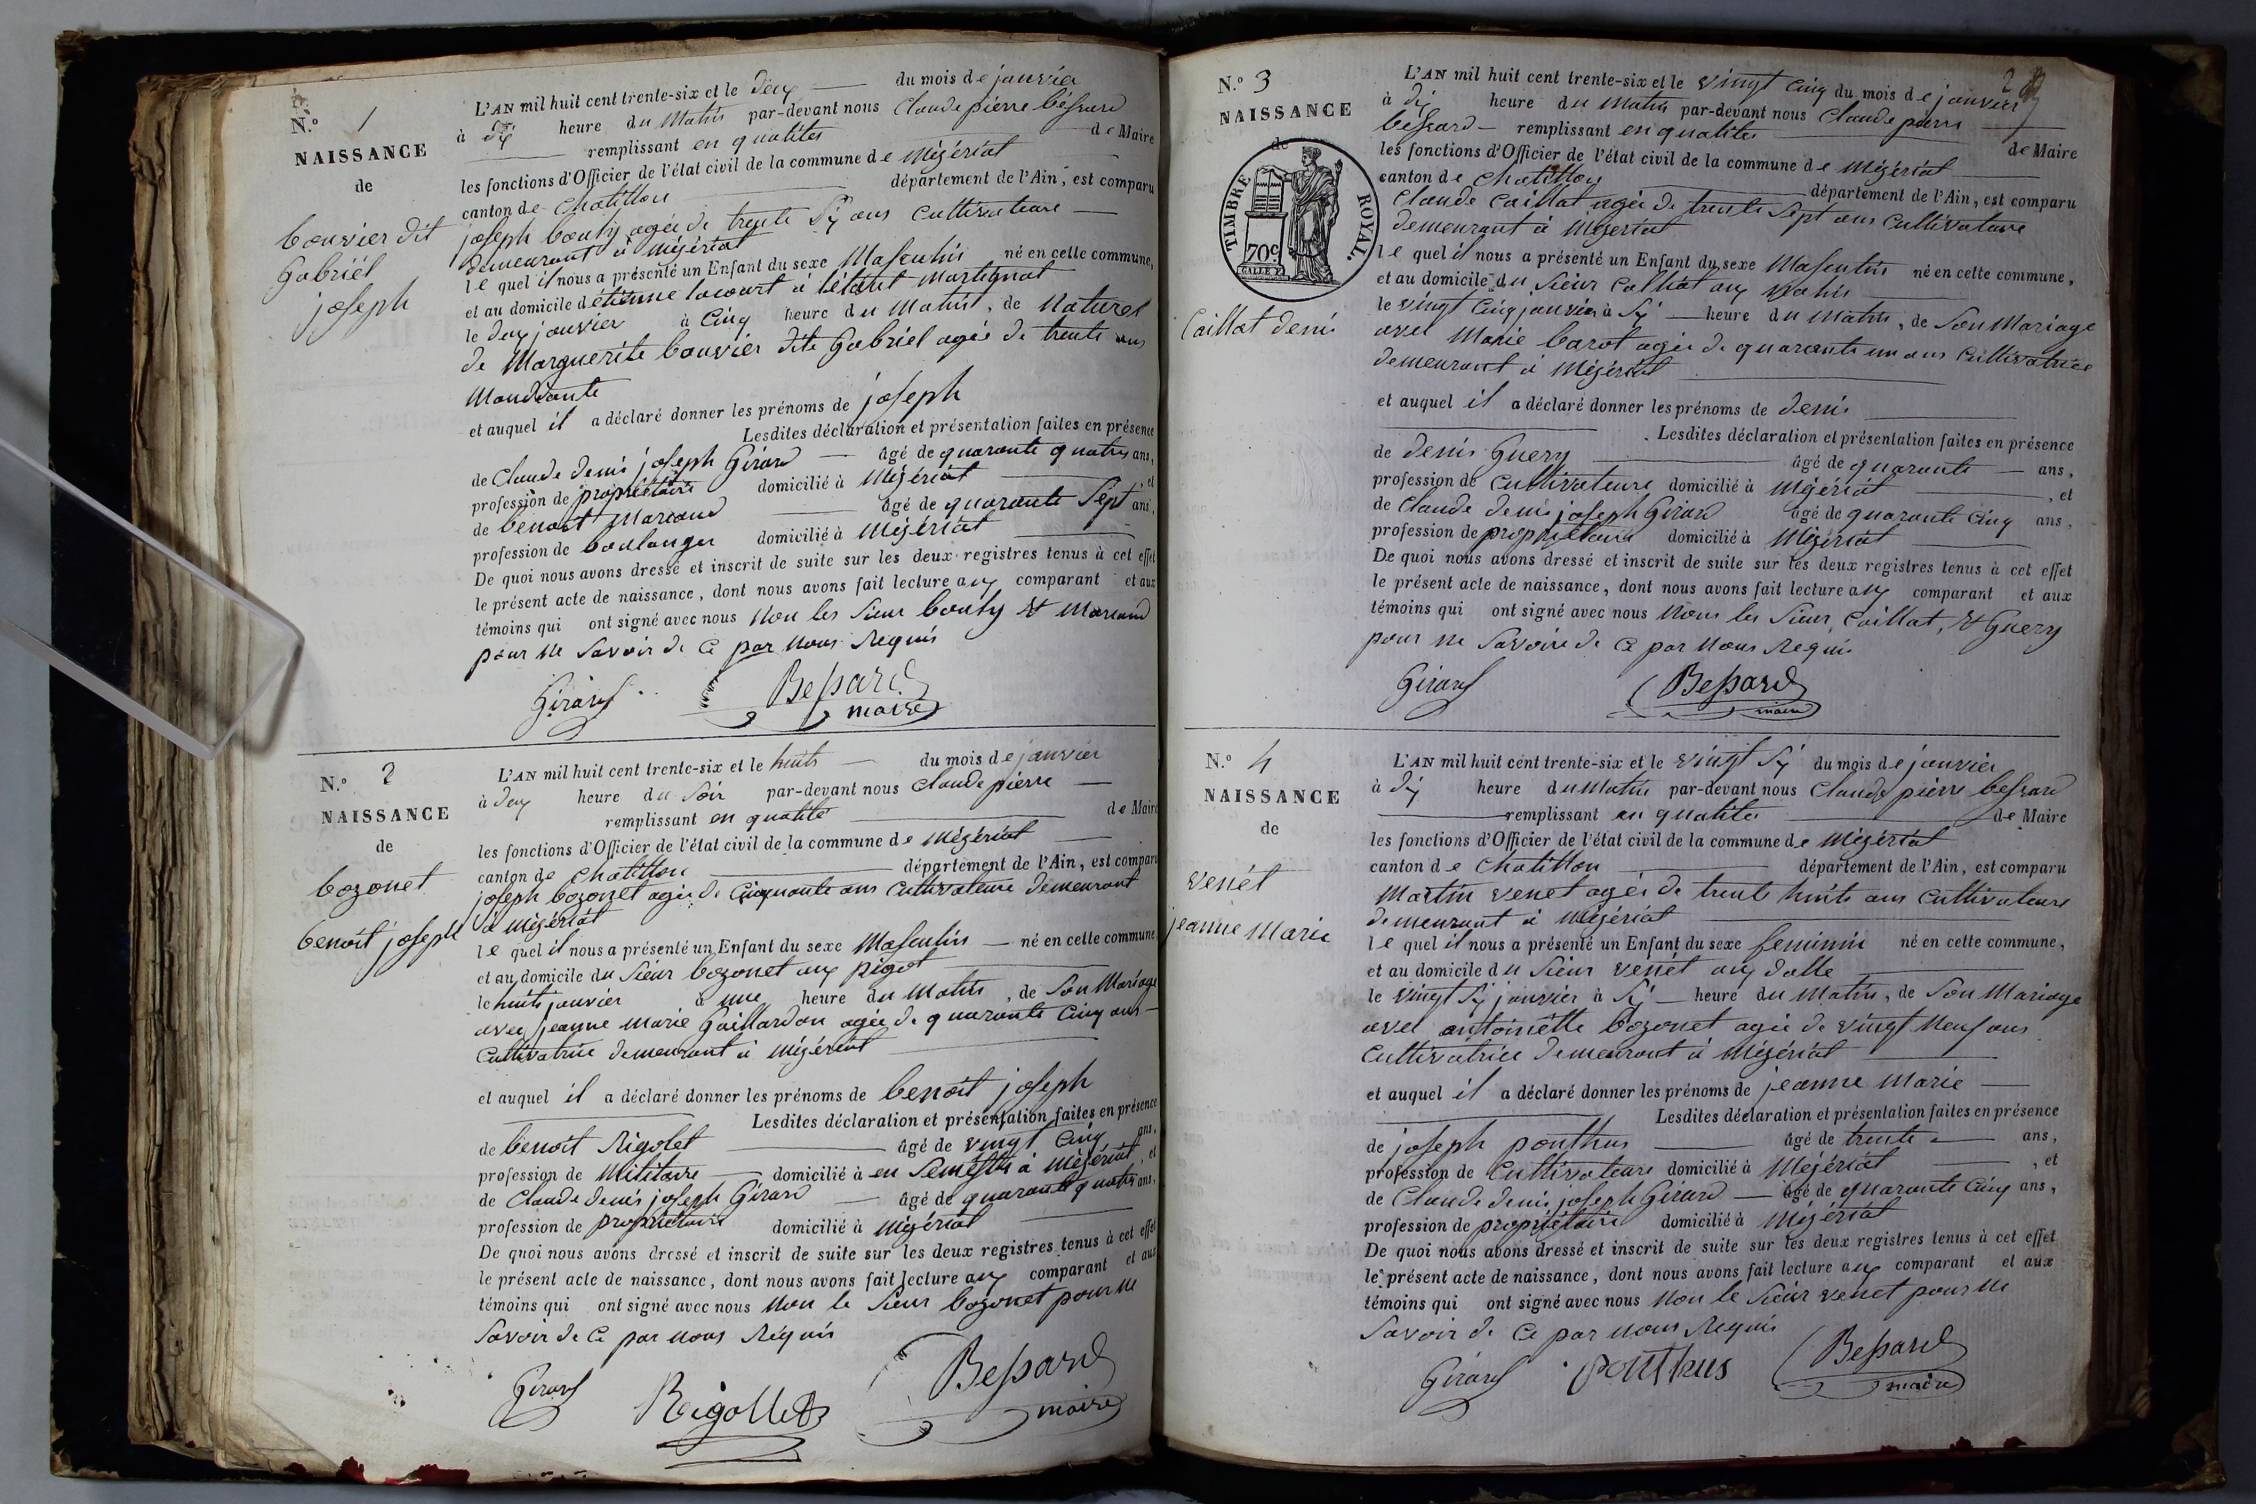 N.º 1
NAISSANCE
de
bouvier dit
Gabriël
joseph
L'AN mil huit cent trente-six et le deux du mois de janvier
à dix heure du Matin par-devant nous Claude pierre bessard
remplissant en qualités de Maire
les fonctions d'Officier de l'état civil de la commune de Mézériat
canton de Chatillon département de l'Ain, est comparu
joseph bouly agée de trente six ans Cultivateure
demeurant à mézériat
le quel il nous a présenté un Enfant du sexe Masculin né en cette commune,
et au domicile d'étienne lacourt à l'étant Martignat
le deux janvier à Cinq heure du Matin, de Naturel
de Marguerite bouvier dite Gabriel agée de trente ans
Mandiante
et auquel il a déclaré donner les prénoms de joseph
Lesdites déclaration et présentation faites en présence
de Claude denis joseph Girard âgé de quarante quatres ans,
profession de propriétaire domicilié à Mézériat et
de benoit Marand âgé de quarante Sept ans,
profession de boulanger domicilié à Mézériat
De quoi nous avons dressé et inscrit de suite sur les deux registres tenus à cet effet
le présent acte de naissance, dont nous avons fait lecture aux comparant et aux
témoins qui ont signé avec nous Non les Sieur bouly et Marand
pour ne Savoir de Ce par Nous Requis
Girard Bessard
maire
N.º 2
NAISSANCE
de
bozonet
benoit joseph
L'AN mil huit cent trente-six et le huits du mois de janvier
à deux heure du Soir par-devant nous Claude pierre
remplissant en qualité de Maire
les fonctions d'Officier de l'état civil de la commune de Mézériat
canton de Chatillon département de l'Ain, est comparu
joseph bozonet agée de Cinquante ans Cultivateure demeurant
à Mézériat
le quel il nous a présenté un Enfant du sexe Masculin né en cette commune
et au domicile du Sieur bozonet aux pigot
le huits janvier à une heure du Matin, de Son Mariage
avec jeanne Marie Gaillardon agée de quarante Cinq ans
Cultivatrice demeurant à Mézériat
et auquel il a déclaré donner les prénoms de benoit joseph
Lesdites déclaration et présentation faites en présence
de benoit Rigolet âgé de vingt Cinq ans,
profession de Militaire domicilié à en Semestre à Mézériat, et
de Claude denis joseph Girard âgé de quarante quatres ans,
profession de propriétaire domicilié à Mézériat
De quoi nous avons dressé et inscrit de suite sur les deux registres tenus à cet effet
le présent acte de naissance, dont nous avons fait lecture aux comparant et aux
témoins qui ont signé avec nous Non le Sieur bozonet pour ne
Savoir de Ce par Nous Requis
Girard Rigollet Bessard
maire
N.º 3
NAISSANCE
de
TIMBRE ROYAL.
70c.
Caillat denis
L'AN mil huit cent trente-six et le vingt Cinq du mois de janvier
à dix heure du Matin par-devant nous Claude pierre
bessard remplissant en qualités de Maire
les fonctions d'Officier de l'état civil de la commune de Mézériat
canton de Chatillon département de l'Ain, est comparu
Claude Caillat agée de trente Sept ans Cultivateure
demeurant à Mézériat
le quel il nous a présenté un Enfant du sexe Masculin né en cette commune,
et au domicile du Sieur Caillat aux
le vingt Cinq janvier à Six heure du Matin, de Son Mariage
avec Marie barot agée de quarante un ans Cultivatrice
demeurant à Mézériat
et auquel il a déclaré donner les prénoms de denis
Lesdites déclaration et présentation faites en présence
de denis Guery âgé de quarante ans,
profession de Cultivateure domicilié à Mézériat, et
de Claude denis joseph Girard âgé de quarante Cinq ans,
profession de propriétaire domicilié à Mézériat
De quoi nous avons dressé et inscrit de suite sur les deux registres tenus à cet effet
le présent acte de naissance, dont nous avons fait lecture aux comparant et aux
témoins qui ont signé avec nous Nons les Sieur Caillat, et Guery
pour ne Savoire de Ce par Nous Requis
Girard Bessard
maire
N.º 4
NAISSANCE
de
venét
jeanne Marie
L'AN mil huit cent trente-six et le vingt Six du mois de janvier
à dix heure du Matin par-devant nous Claude pierre bessard
remplissant en qualités de Maire
les fonctions d'Officier de l'état civil de la commune de Mézériat
canton de Chatillon département de l'Ain, est comparu
Martin venet agée de trente huits ans Cultivateure
demeurant à Mézériat
le quel il nous a présenté un Enfant du sexe feminin né en cette commune,
et au domicile du Sieur venét aux dalle
le vingt Six janvier à Six heure du Matin, de Son Mariage
avec antoinette bozonet agée de vingt Neuf ans
Cultivatrice demeurant à Mézériat
et auquel il a déclaré donner les prénoms de jeanne Marie
Lesdites déclaration et présentation faites en présence
de joseph ponthus âgé de trente ans,
profession de Cultivateure domicilié à Mézériat, et
de Claude denis joseph Girard âgé de quarante Cinq ans,
profession de propriétaire domicilié à Mézériat
De quoi nous avons dressé et inscrit de suite sur les deux registres tenus à cet effet
le présent acte de naissance, dont nous avons fait lecture aux comparant et aux
témoins qui ont signé avec nous Non le Sieur venet pour ne
Savoir de Ce par Nous Requis
Girard ponthus Bessard
maire